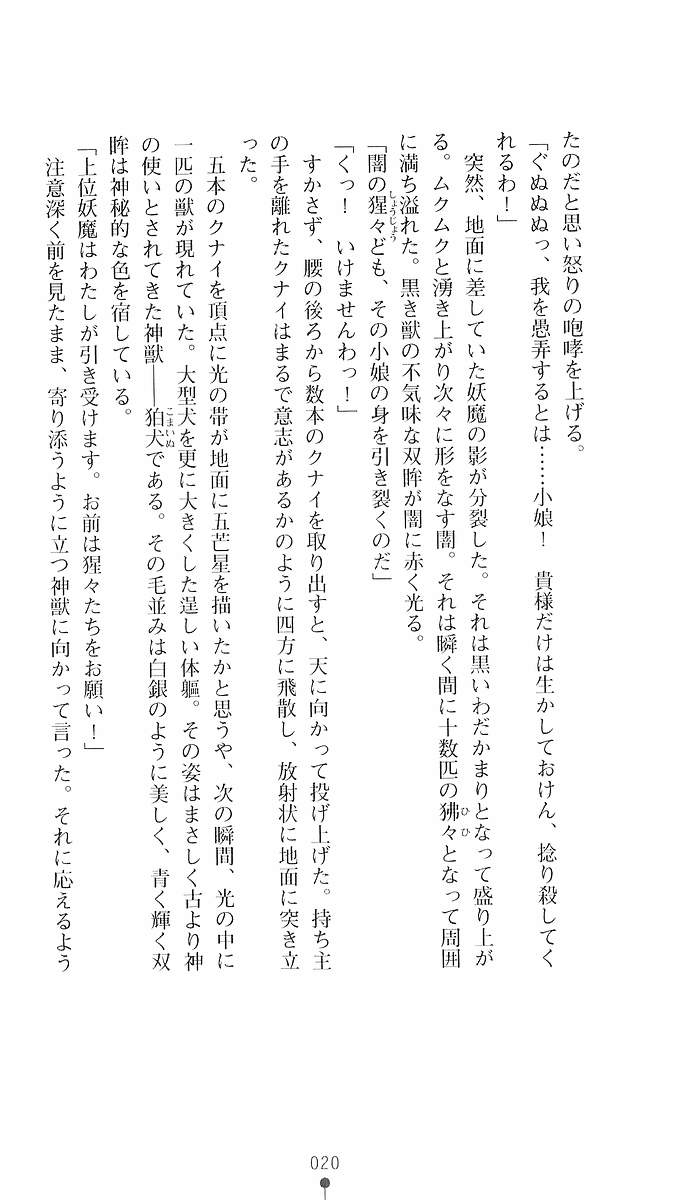 たのだと思い怒りの咆哮を上げる。
「ぐぬぬぬっ、我を愚弄するとは……小娘！　貴様だけは生かしておけん、捻り殺してく
れるわ！」
　突然、地面に差していた妖魔の影が分裂した。それは黒いわだかまりとなって盛り上が
る。ムクムクと湧き上がり次々に形をなす闇。それは瞬く間に十数匹の狒々となって周囲
に満ち溢れた。黒き獣の不気味な双眸が闇に赤く光る。
「闇の猩々ども、その小娘の身を引き裂くのだ」
「くっ！　いけませんわっ！」
　すかさず、腰の後ろから数本のクナイを取り出すと、天に向かって投げ上げた。持ち主
の手を離れたクナイはまるで意志があるかのように四方に飛散し、放射状に地面に突き立
った。
　五本のクナイを頂点に光の帯が地面に五芒星を描いたかと思うや、次の瞬間、光の中に
一匹の獣が現れていた。大型犬を更に大きくした逞しい体軀。その姿はまさしく古より神
の使いとされてきた神獣――狛犬である。その毛並みは白銀のように美しく、青く輝く双
眸は神秘的な色を宿している。
「上位妖魔はわたしが引き受けます。お前は猩々たちをお願い！」
　注意深く前を見たまま、寄り添うように立つ神獣に向かって言った。それに応えるよう
ひひ
しょうじょう
こまいぬ
020